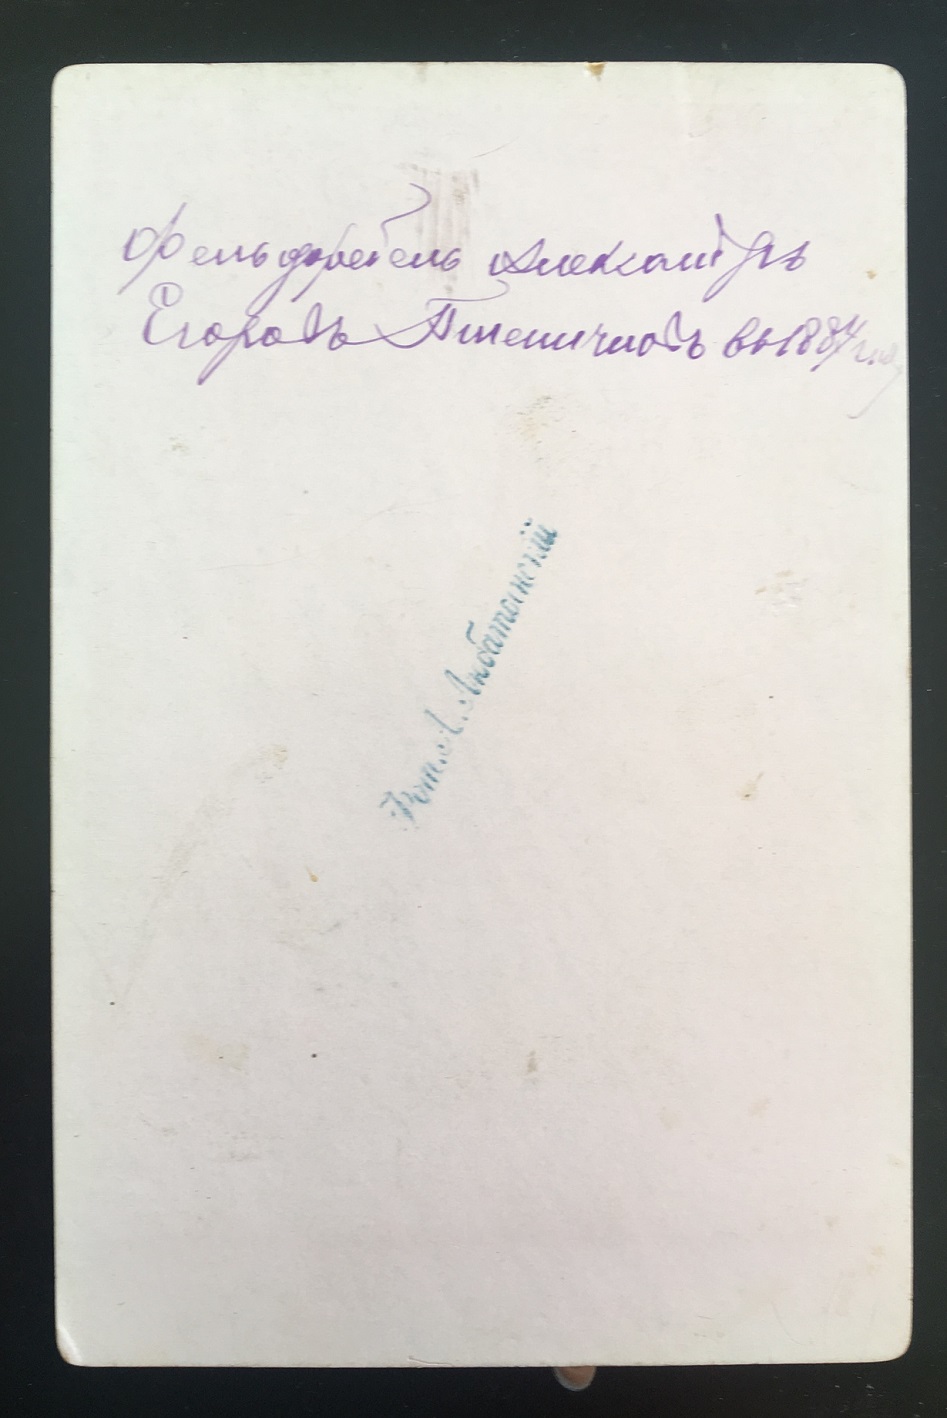 Фельдфебель Александръ
Егоровъ Пшеничновъ въ 1887 году
Фот. А. Любатынскій